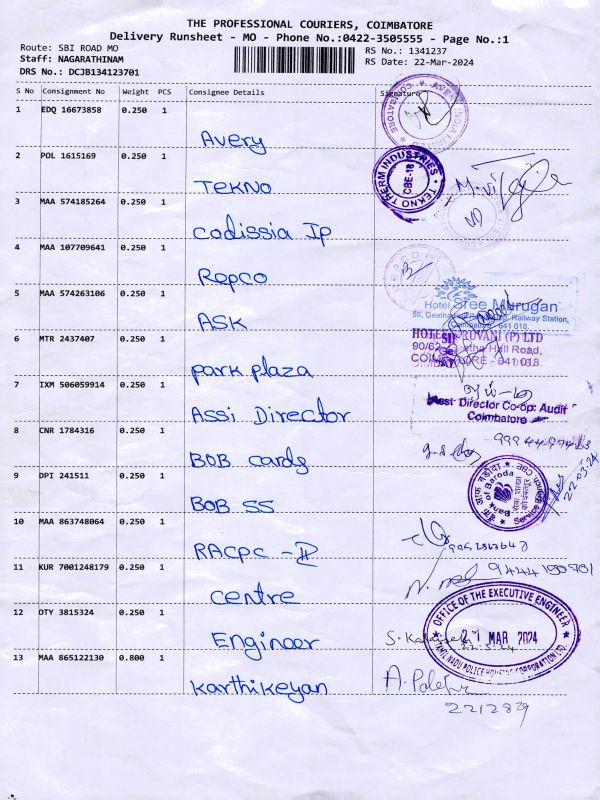 THE PROFESSIONAL COURIERS, COIMBATORE
Delivery Runsheet - MO - Phone No.:0422-3505555 - Page No.:1
Route: SBI ROAD MO
RS No.: 1341237
Staff: NAGARATHINAM
RS Date: 22-Mar-2024
DRS No.: DCJB134123701
S No Consignment No Weight PCS Consignee Details Signature
1 EDQ 16673858 0.250 1
Avery
2 POL 1615169 0.250 1
TEKNO
TEKNO THERM INDUSTRIES
CBE-18
3 MAA 574185264 0.250 1
codissia Ip
4 MAA 107709641 0.250 1
Repco
5 MAA 574263106 0.250 1
ASK
Hotel Sree Murugan
Railway Station,
Coimbatore - 641 018.
6 MTR 2437407 0.250 1
park plaza
(P) LTD
90/62
Hall Road,
- 641 018
7 IXM 506059914 0.250 1
Assi Director
Asst Director Co-op: Audit
Coimbatore
8 CNR 1784316 0.250 1
BOB cards
9 DPI 241511 0.250 1
BOB SS
Bank of Baroda
22.03.24
10 MAA 863748064 0.250 1
RACPC - II
11 KUR 7001248179 0.250 1
centre
12 OTY 3815324 0.250 1
Engineer
OFFICE OF THE EXECUTIVE ENGINEER
MAR 2024
TAMIL NADU POLICE HOUSING CORPORATION LTD.
13 MAA 865122130 0.800 1
karthikeyan